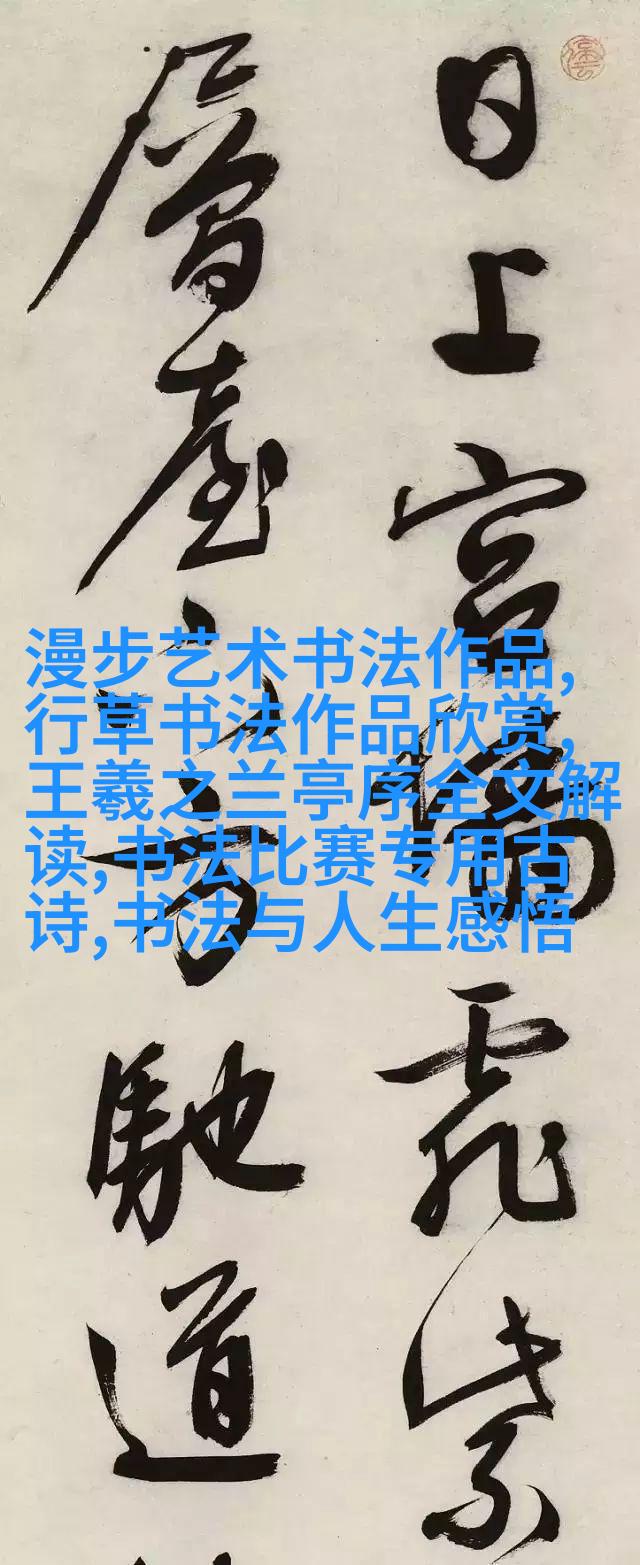 日上宫墻飛紫
層臺下方馳道
漫步艺术书法作品,
行草书法作品欣赏,
王羲之兰亭序全文解
读,书法比赛专用古
诗,书法与人生感悟